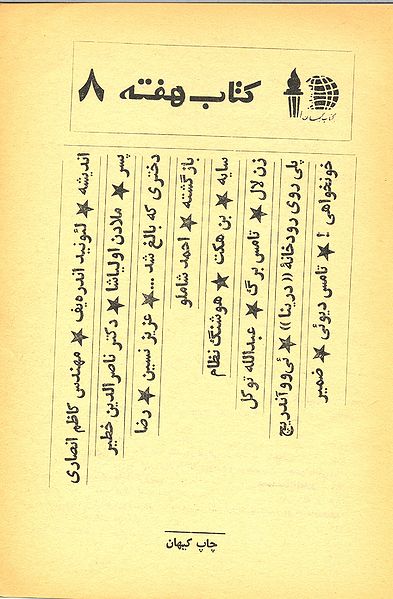 کتاب هفته ۸
اندیشه ★ لئونید اندره‌یف ★ مهندس کاظم انصاری
پسر ★ ملادن اولیاشا ★ دکتر ناصرالدین خطیر
دختری که بالغ شد... ★ عزیز نسین ★ رضا
بازگشته ★ احمد شاملو
سایه ★ بن هکت ★ هوشنگ نظام
زن لال ★ تامس برگ ★ عبدالله توکل
پلی روی رودخانهٔ ((درینا)) ★ ئی‌وو آندریچ
خونخواهی ! ★ تامس دیوئی ★ ضمیر
چاپ کیهان